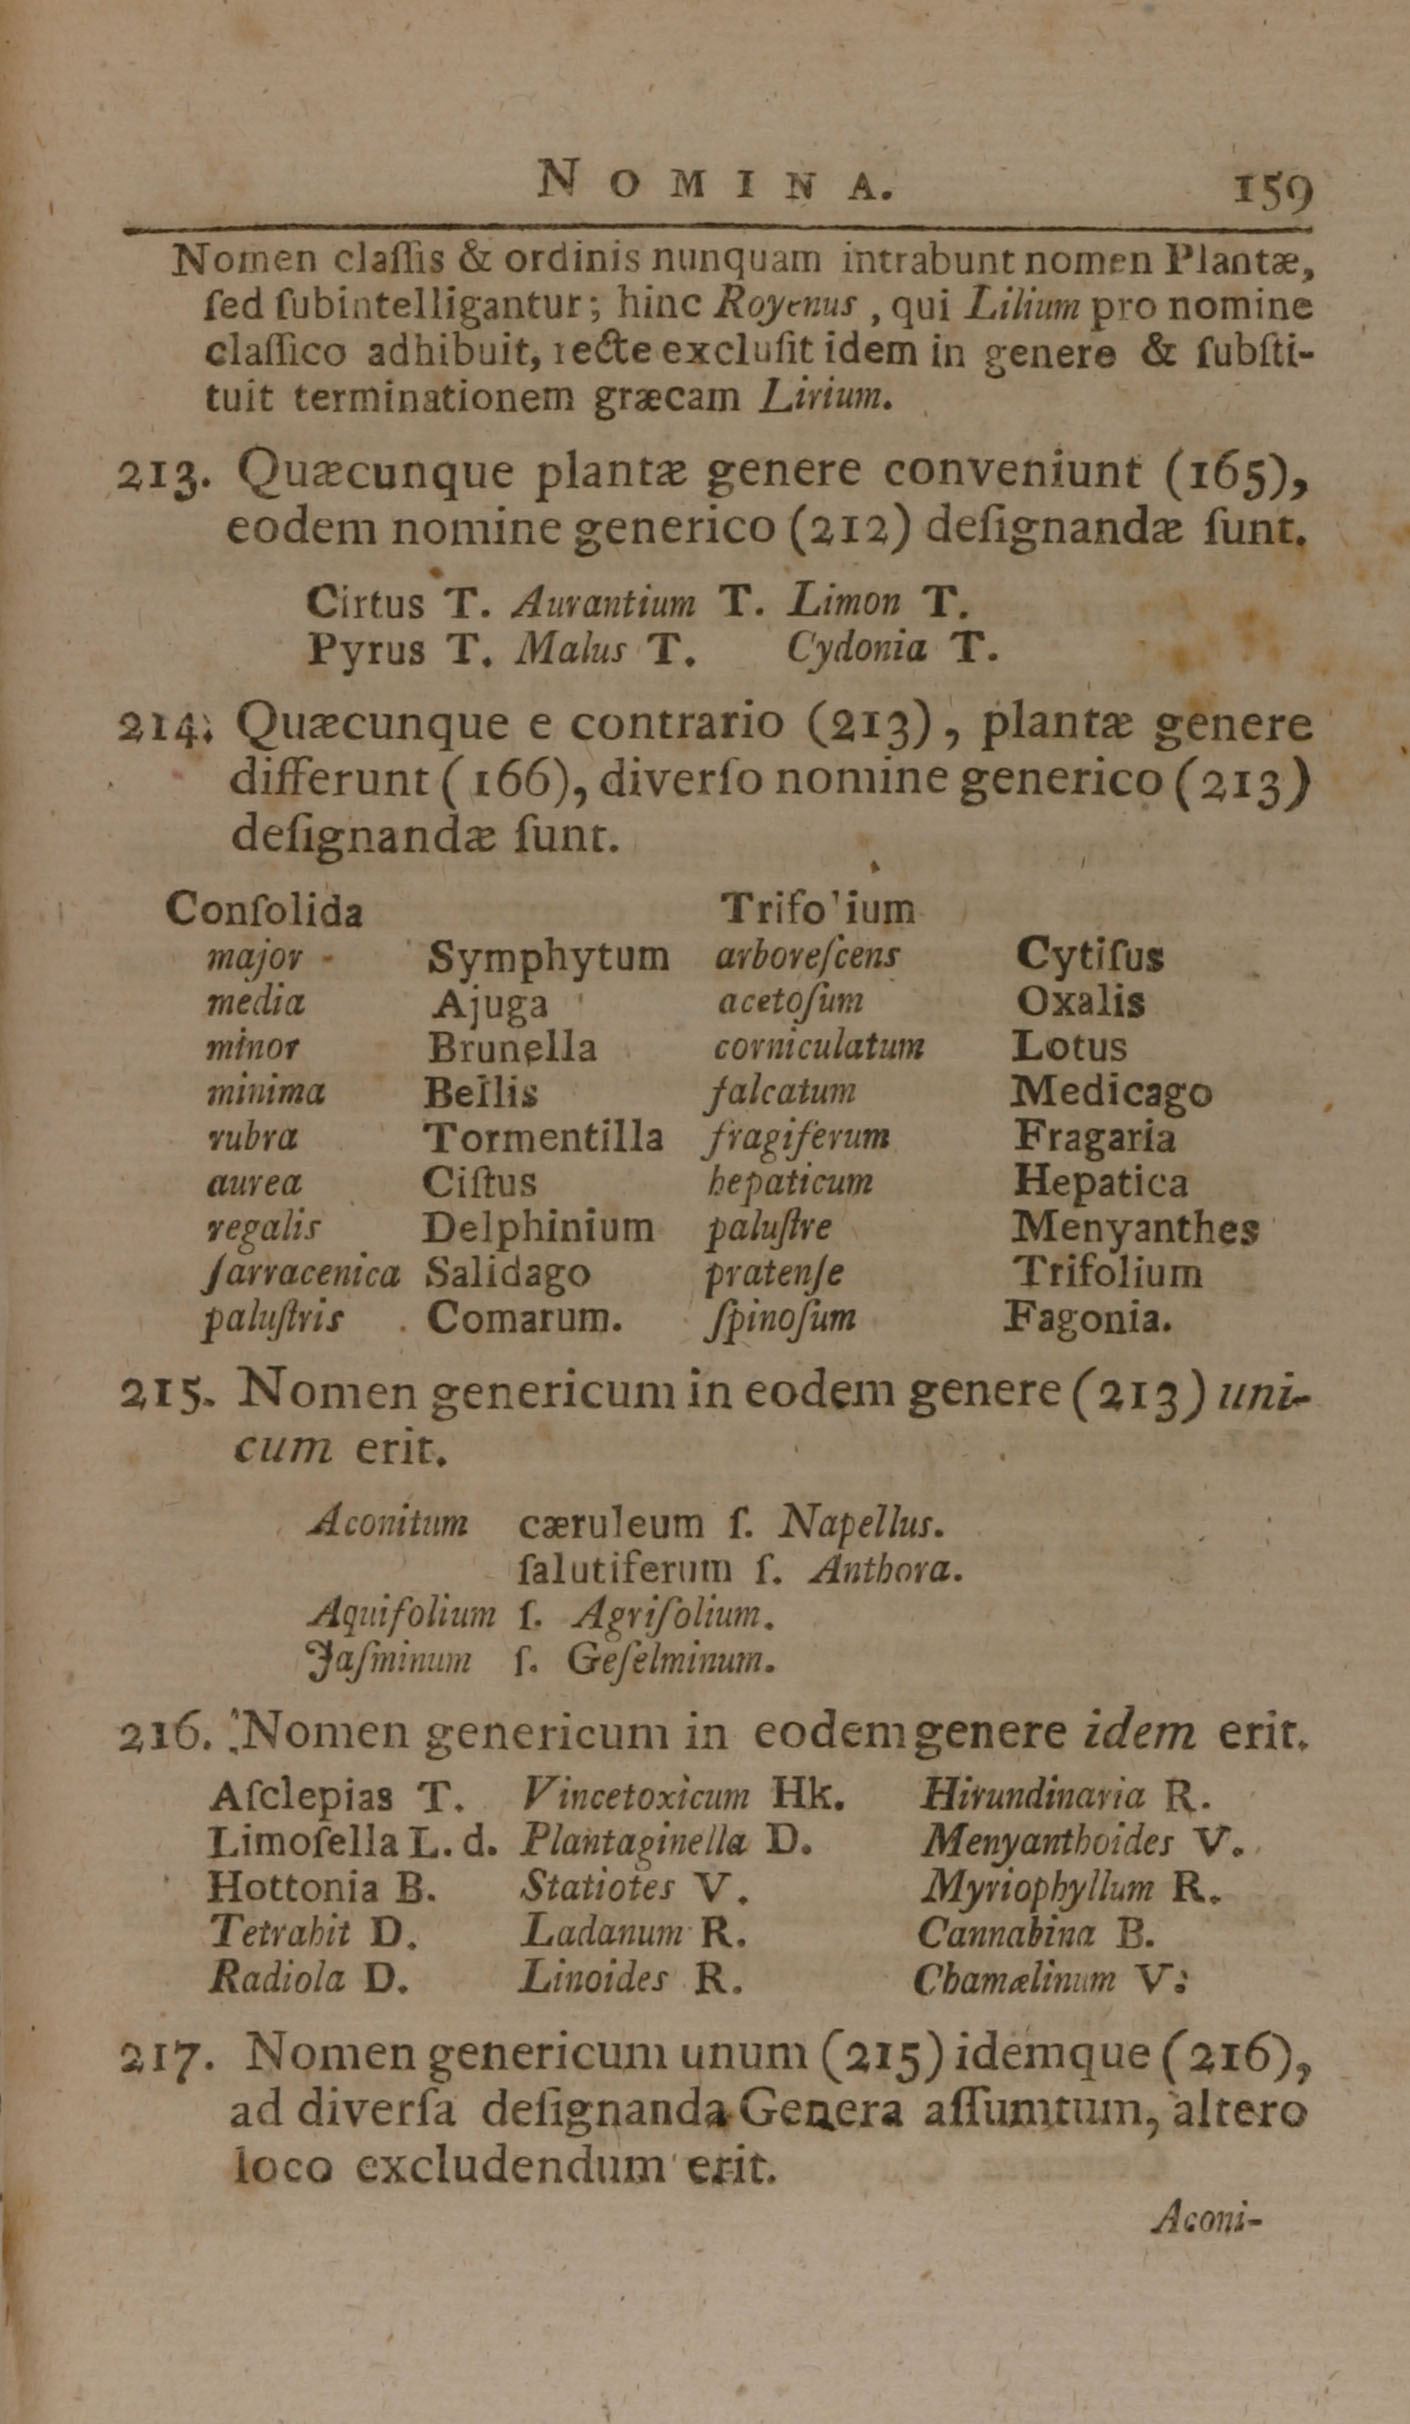 NOMINA. 159
Nomen claſſis & ordinis nunquam intrabunt nomen Plantæ,
ſed ſubintelligantur; hinc Royenus, qui Lilium pro nomine
claſſico adhibuit, recte excluſit idem in genere & ſubſti-
tuit terminationem græcam Lirium.
213. Quæcunque plantæ genere conveniunt (165),
eodem nomine generico (212) deſignandæ ſunt.
Cirtus T. Aurantium T. Limon T.
Pyrus T. Malus T. Cydonia T.
214. Quæcunque e contrario (213), plantæ genere
differunt (166), diverſo nomine generico (213)
deſignandæ ſunt.
Conſolida Trifolium
major Symphytum arboreſcens Cytiſus
media Ajuga acetoſum Oxalis
minor Brunella corniculatum Lotus
minima Bellis falcatum Medicago
rubra Tormentilla fragiferum Fragaria
aurea Ciſtus hepaticum Hepatica
regalis Delphinium paluſtre Menyanthes
ſarracenica Salidago pratenſe Trifolium
paluſtris Comarum. ſpinoſum Fagonia.
215. Nomen genericum in eodem genere (213) uni-
cum erit.
Aconitum cæruleum ſ. Napellus.
ſalutiferum ſ. Anthora.
Aquifolium ſ. Agrifolium.
Jaſminum ſ. Geſelminum.
216. Nomen genericum in eodem genere idem erit.
Aſclepias T. Vincetoxicum Hk. Hirundinaria R.
Limoſella L. d. Plantaginella D. Menyanthoides V.
Hottonia B. Statiotes V. Myriophyllum R.
Tetrahit D. Ladanum R. Cannabina B.
Radiola D. Linoides R. Chamælinum V.
217. Nomen genericum unum (215) idemque (216),
ad diverſa deſignanda Genera aſſumtum, altero
loco excludendum erit.
Aconi-